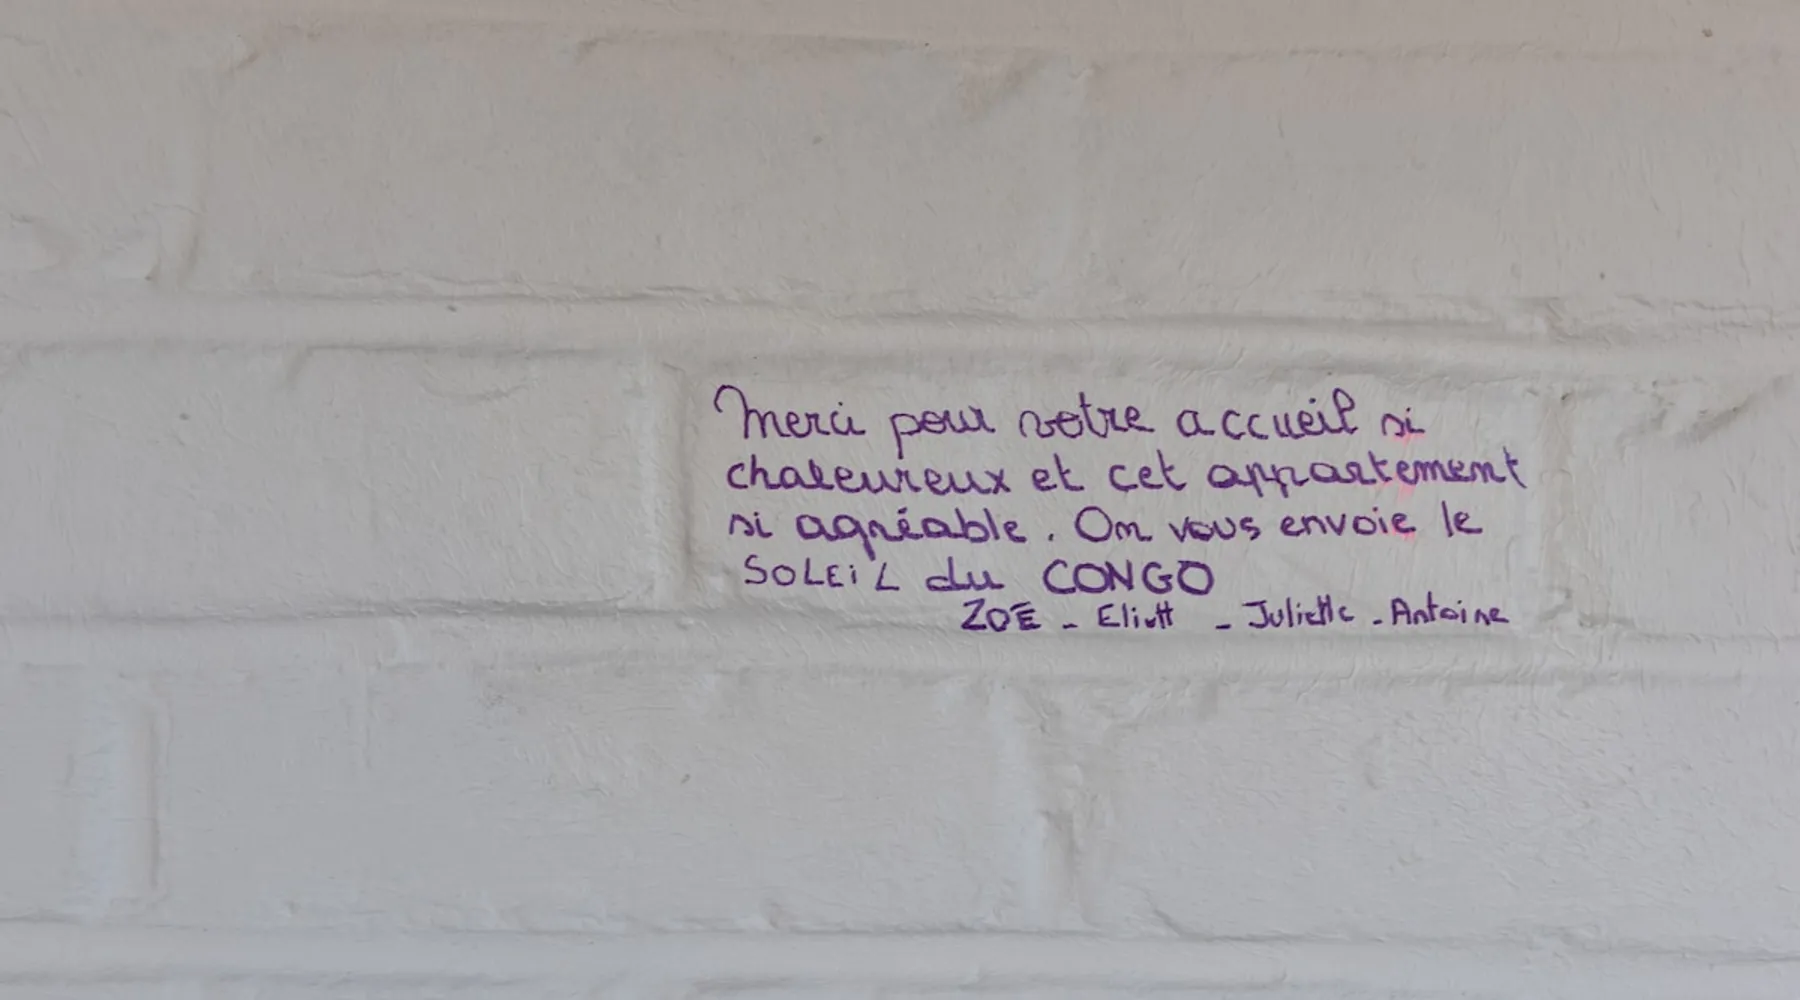 Merci pour votre accueil si
chaleureux et cet appartement
si agréable. On vous envoie le
SOLEiL du CONGO
ZOË - Eliott - Juliette - Antoine